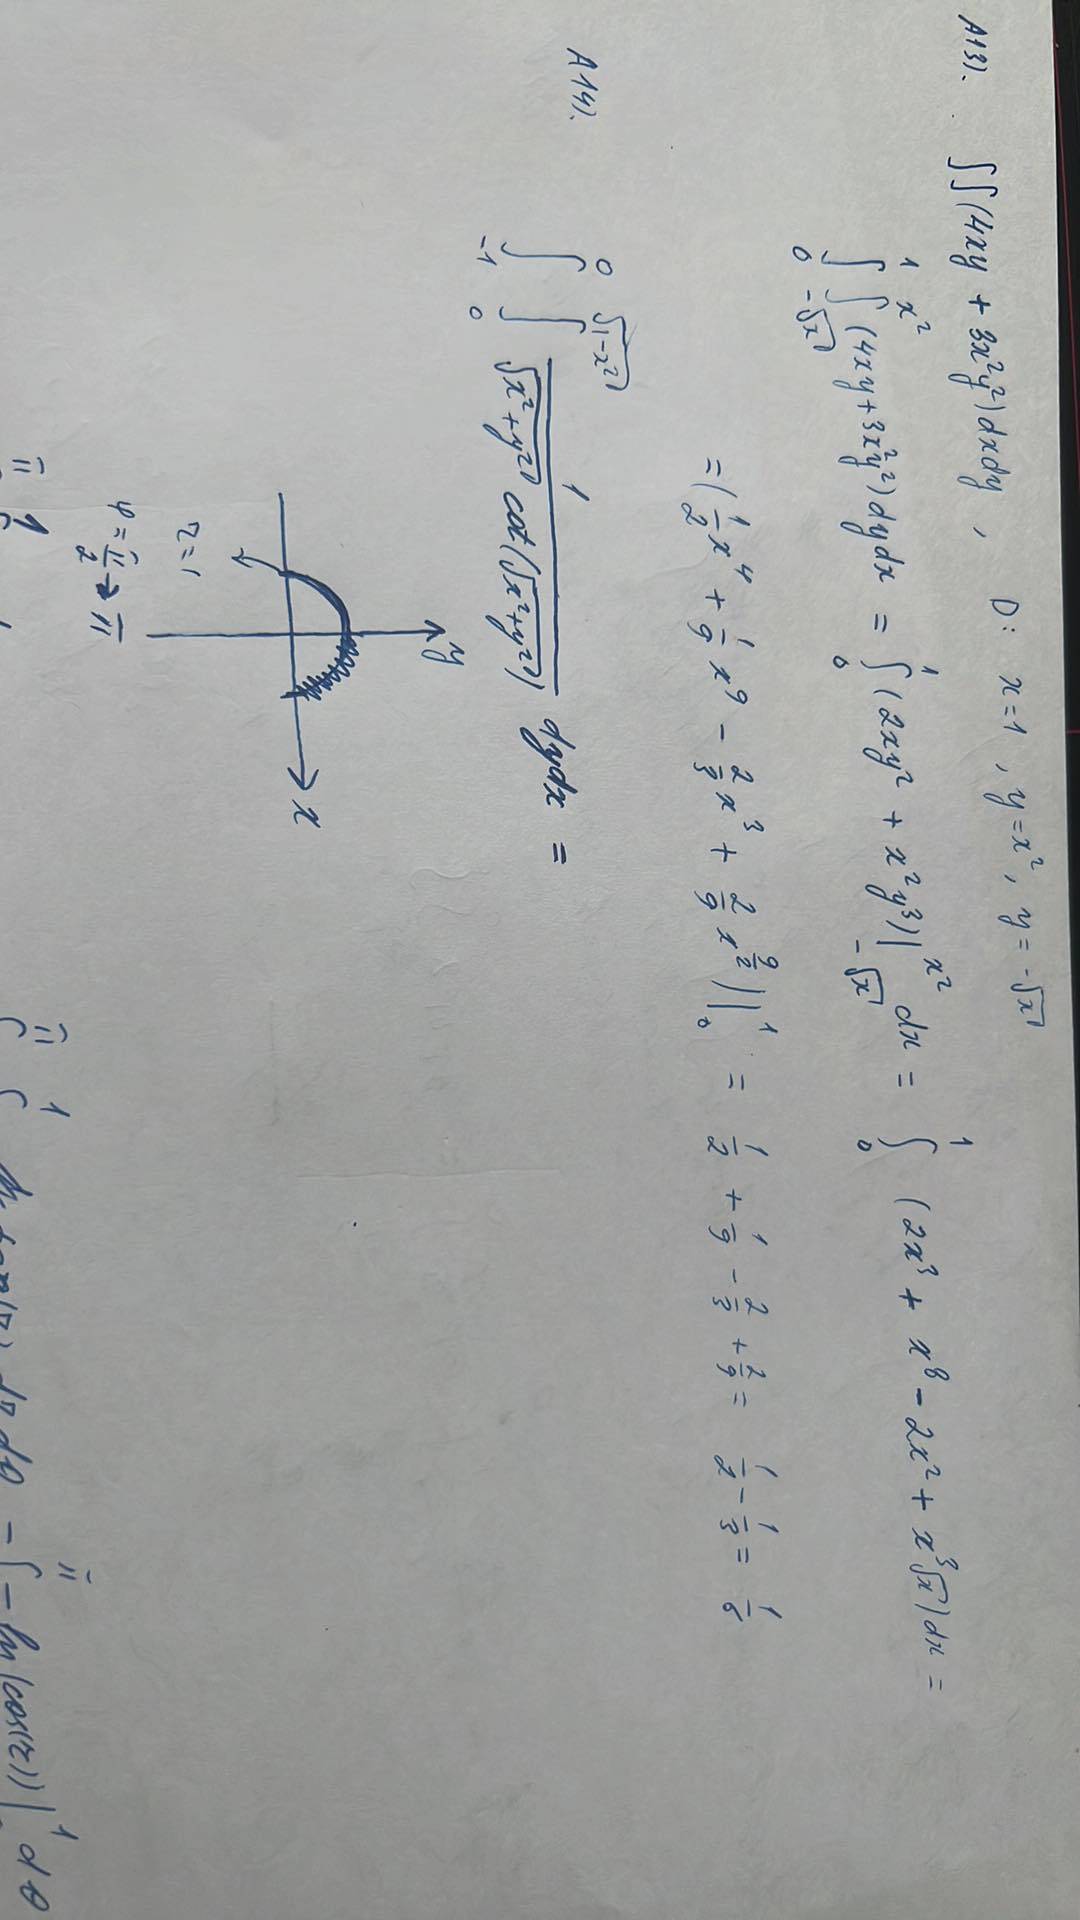 A13). ∫∫(4xy + 3x²y²)dxdy , D: x=1 , y=x², y= -√x
∫₀¹ ∫_{-√x}^{x²} (4xy+3x²y²)dydx = ∫₀¹ (2xy² + x²y³)|_{-√x}^{x²} dx = ∫₀¹ (2x³ + x⁸ - 2x² + x³√x)dx =
= (1/2 x⁴ + 1/9 x⁹ - 2/3 x³ + 2/9 x^{9/2})|₀¹ = 1/2 + 1/9 - 2/3 + 2/9 = 1/2 - 1/3 = 1/6
A14). ∫_{-1}^{0} ∫_{0}^{√(1-x²)} 1/(√(x²+y²) cot(√(x²+y²))) dydx =
y
x
r=1
φ = π/2 → π
π 1 π 1 tan(r) dr dθ = ∫^π - ln(cos(r))|¹ dθ